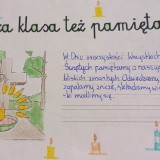 za klasa też pamięta
W Dniu uroczystości Wszystkich
Świętych pamiętamy o naszych
bliskich zmarłych. Odwiedzamy
zapalamy znicze, składamy wie
modlimy się.